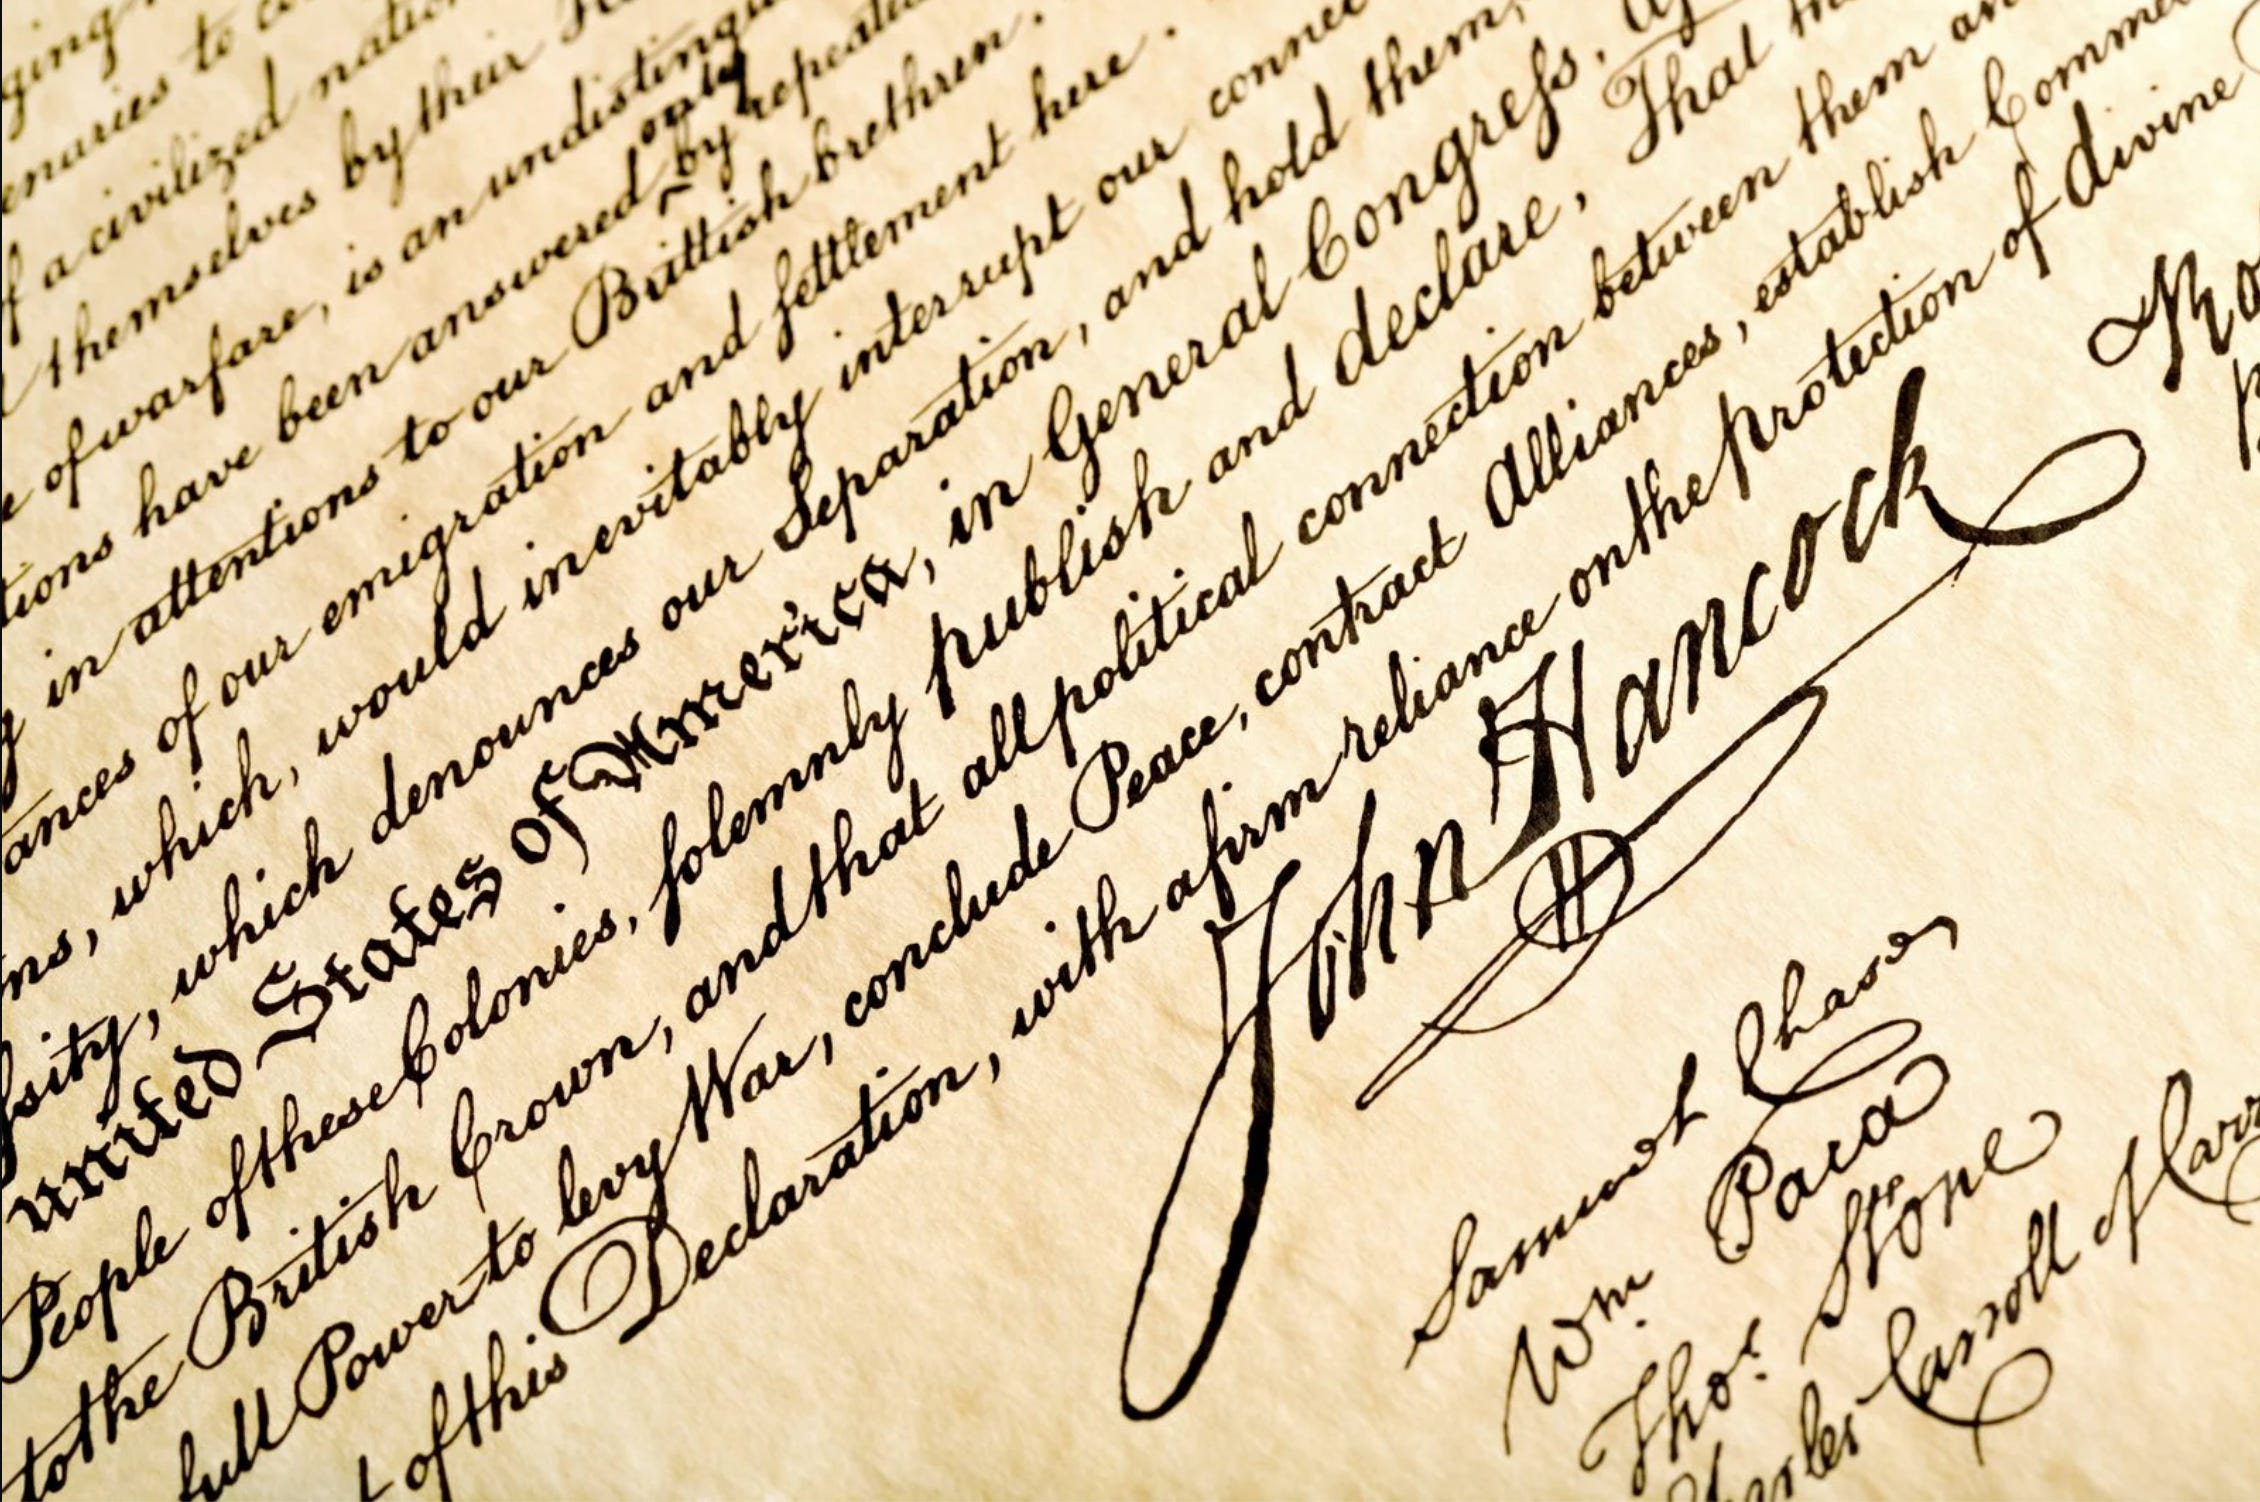 ging
enaries to
f a civilized natio
themselves by their
e of warfare, is an undistingu
only
tions have been answered by repeate
g in attentions to our Brittish brethren.
ances of our emigration and settlement here.
ns, which, would inevitably interrupt our connec
ssity, which denounces our Separation, and hold them,
united States of America, in General Congress,
People of these Colonies, solemnly publish and declare, That
to the British Crown, and that all political connection between them an
full Power to levy War, conclude Peace, contract Alliances, establish Comme
t of this Declaration, with a firm reliance on the protection of divine
John Hancock
Ro
Samuel Chase
Wm. Paca
Thos. Stone
Charles Carroll of Carr